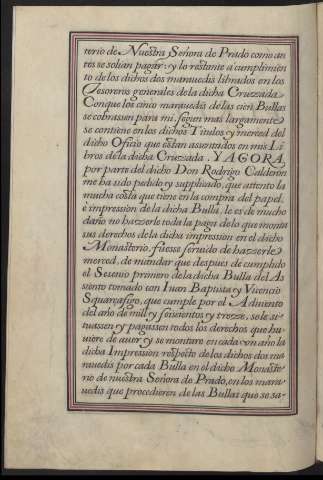 terio de Nuestra Señora de Prado como an
tes se solian pagar: y lo restante a cumplimien
to de los dichos dos marauedis librados en los
Tesoreros generales de la dicha Cruzada.
Con que los cinco marauedis de las cien Bullas
se cobrassen para mi, segun mas largamente
se contiene en los dichos Titulos y merced del
dicho Oficio que estan assentados en mis Li
bros de la dicha Cruzada. Y AGORA
por parte del dicho Don Rodrigo Calderon
me ha sido pedido y supplicado, que attento la
mucha costa que tiene en la compra del papel,
e impression de la dicha Bulla, le es de mucho
daño no hazerle toda la paga de lo que monta
sus derechos de la dicha impression en el dicho
Monasterio, fuesse seruido de hazerle
merced, de mandar que despues de cumplido
el Sexenio primero de la dicha Bulla del As
siento tomado con Iuan Baptista y Vicencio
Squarçafigo, que cumple por el Aduiento
del año de mill y seiscientos y trezze, se le si-
tuassen y pagassen todos los derechos que hu-
uiere de auer y se montare en cada vn año la
dicha Impression respecto de los dichos dos ma
rauedis por cada Bulla en el dicho Monaste
rio de nuestra Señora de Prado, en los mara-
uedis que procedieren de las Bullas que se sa-